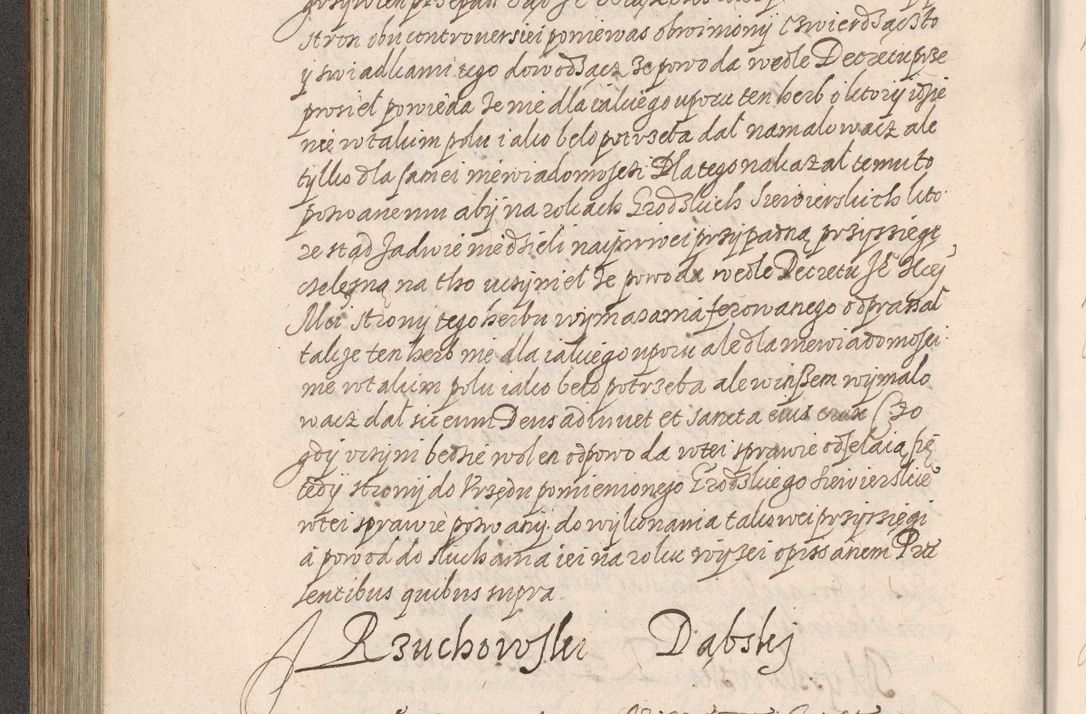 stron obu controuersiei poniewas obwiniony Czwierdząc to
y swiadkami tego dowodząc ze powoda wedle Decretu prze
prosieł powieda Je nie dla iakiego uporu ten herb o ktory idzie
nie w takim polu iako beło potrzeba dał namalowacz ale
tylko dla samei niewiadomosczi Dlatego nakazał temu to
powanemu abÿ na rokach Grodzkich Siewierskich kto
re stąd za dwie niedzieli naypirwei przypadną przysięgę
czelezną na tho uczynieł Je powoda wedle Decretu JE Xcej
Mci strony tego herbu wymazania ferowanego odprassał
takze ten herb nie dla iakiego uporu ale dla niewiadomosci
nie w takim polu iako beło potrzeba ale w inßem wymalo
wacz dał sic eum Deus adiuuet et sancta eius crux Czo
gdy uczyni bedzie wolen od powoda w tei sprawie odsełaią się
tedy strony do Urzędu pomienionego Grodzkiego Siewierskie
w tei sprawie powany do wykonania takowei przysięgi
a powod do słuchania iei na roku wyzei opissanem Prae
sentibus quibus supra
Rzuchowski Dąbsky